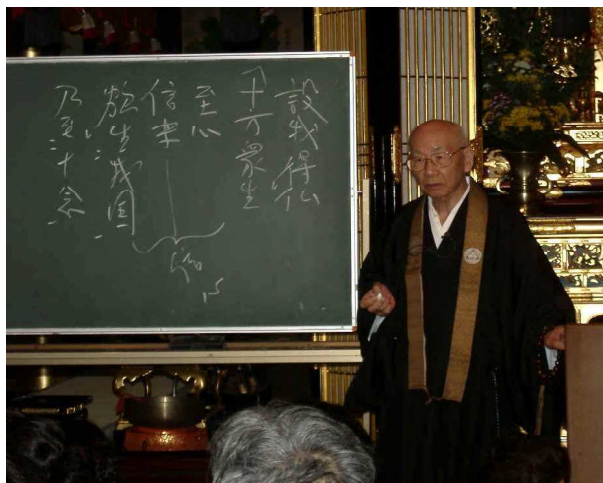 設我得仏
十方衆生
至心
信楽
欲生我国
乃至十念